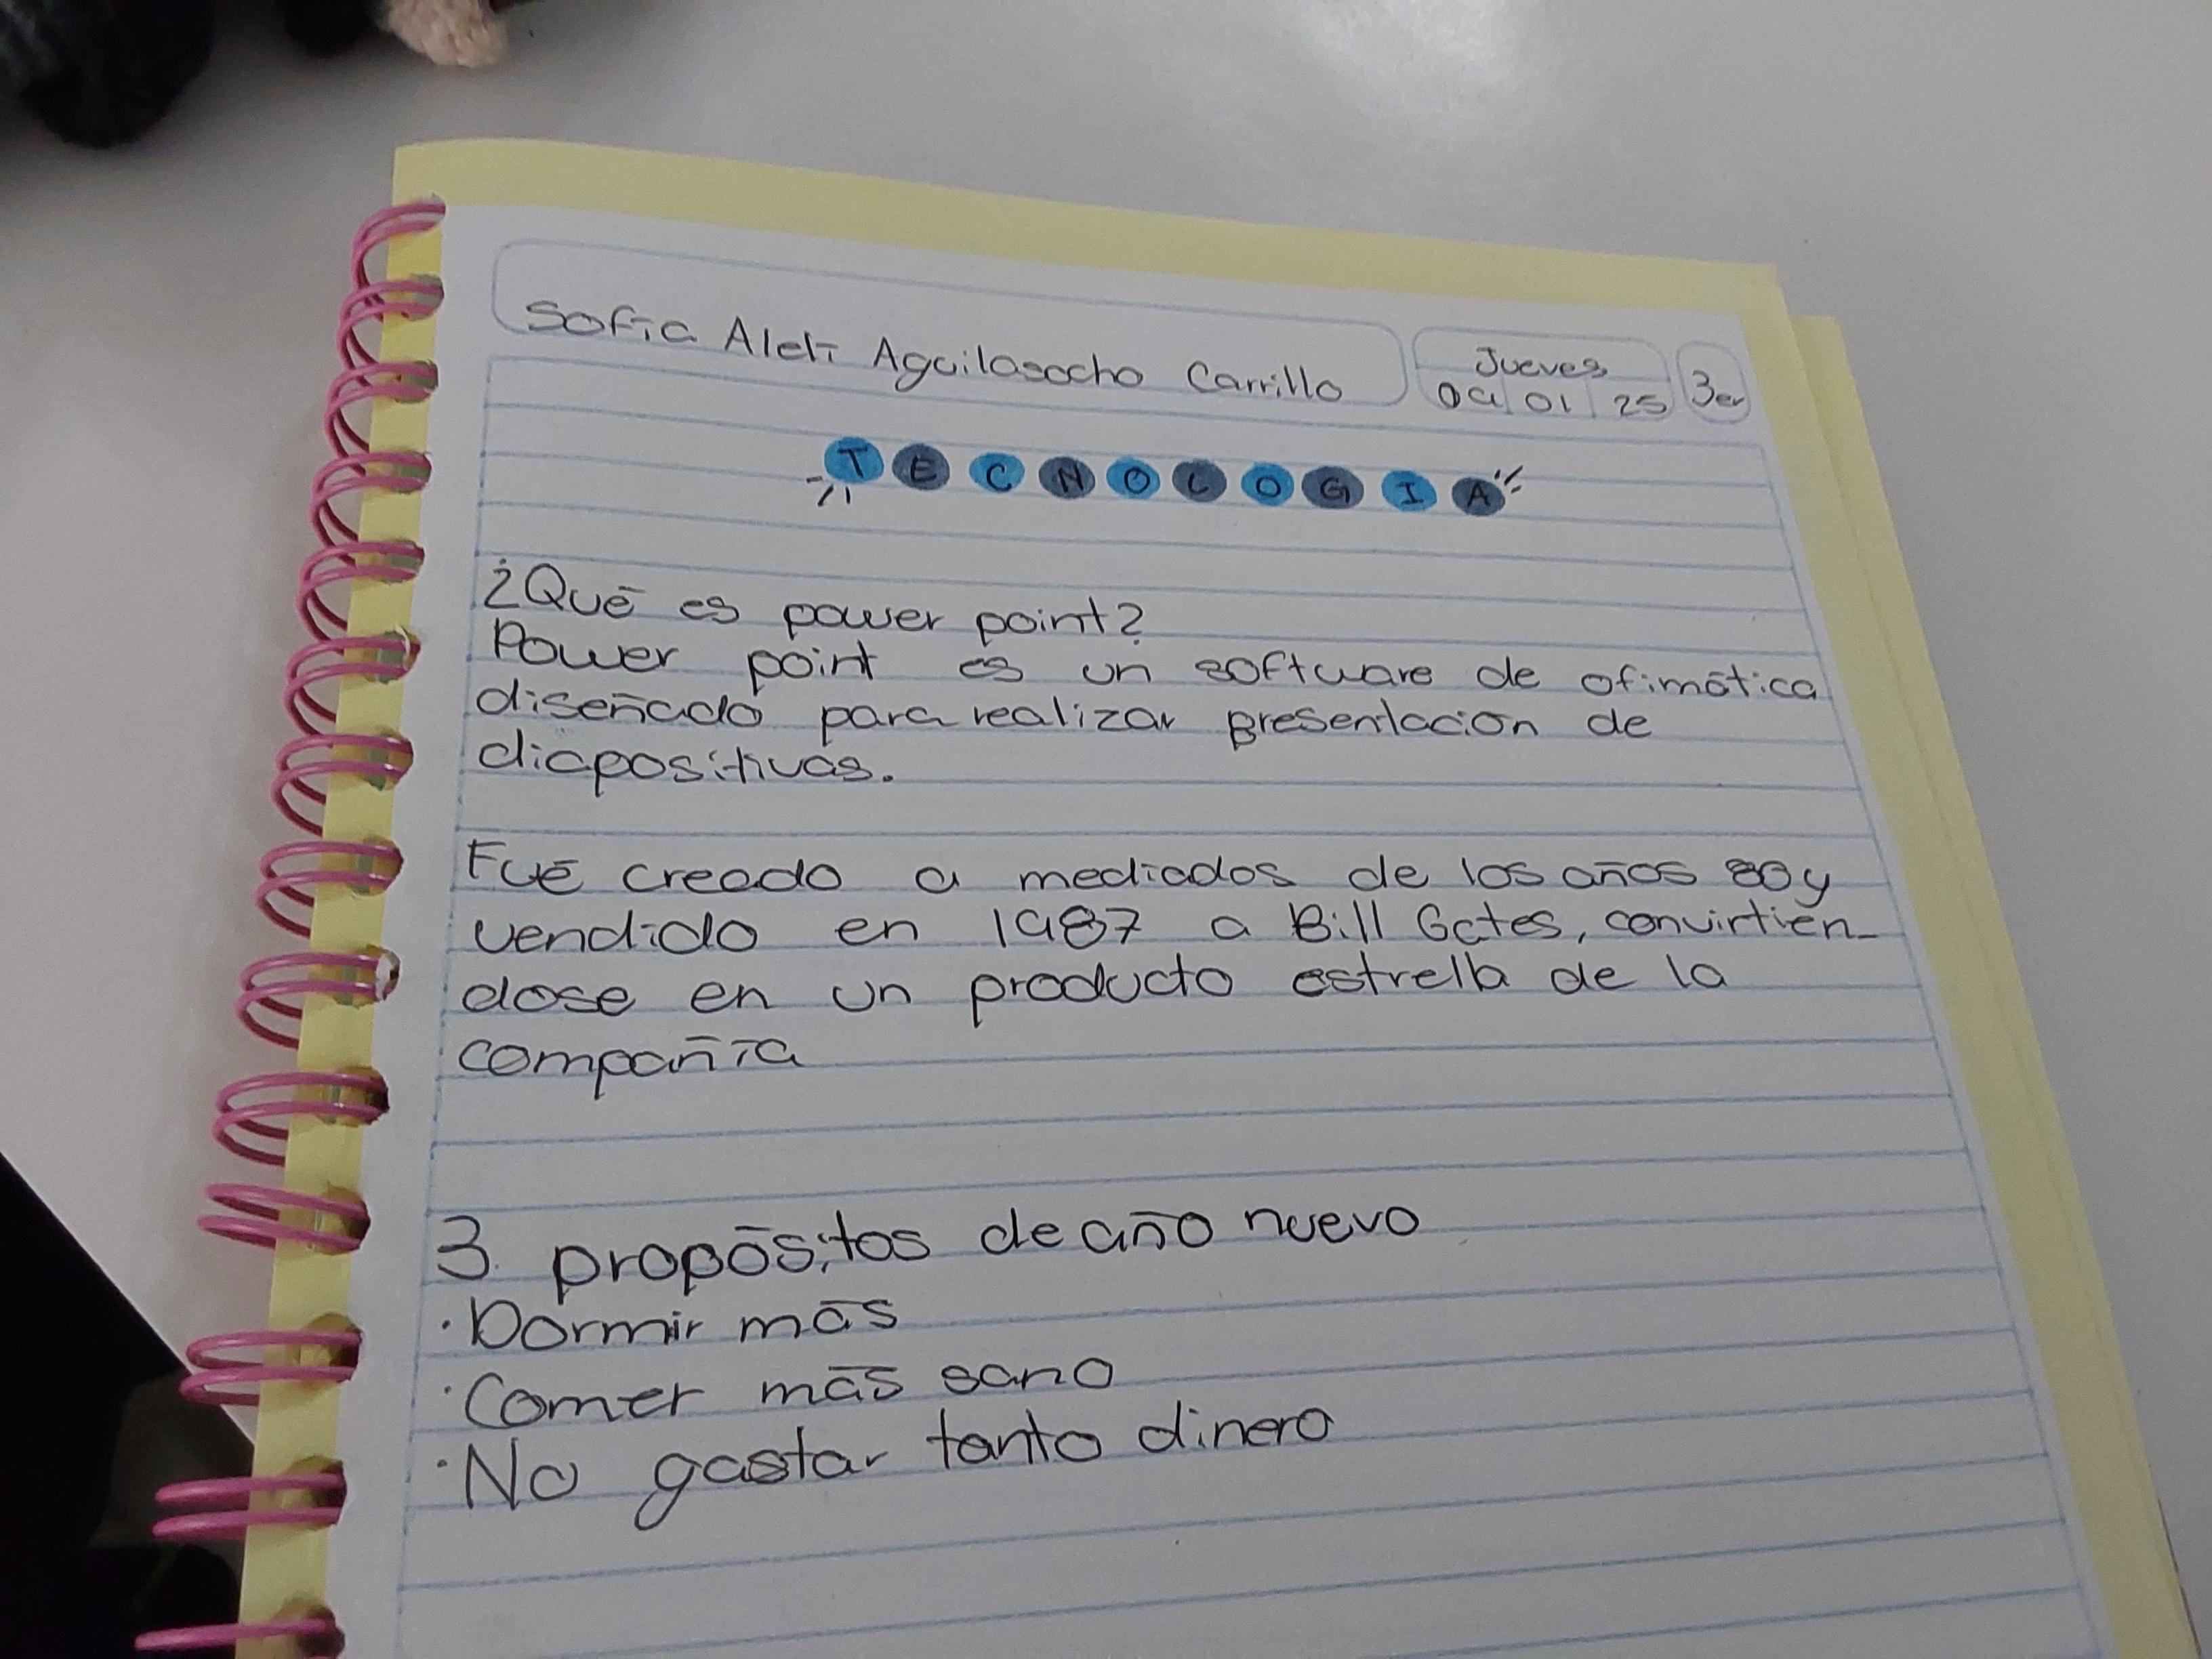 Sofía Aleli Aguilasocho Carrillo
Jueves
09 01 25
3er
TECNOLOGIA
¿Qué es power point?
Power point es un software de ofimática
diseñado para realizar presentación de
diapositivas.
Fué creado a mediados de los años 80 y
vendido en 1987 a Bill Gates, convirtien-
dose en un producto estrella de la
compañía
3 propósitos de año nuevo
· Dormir más
· Comer más sano
· No gastar tanto dinero